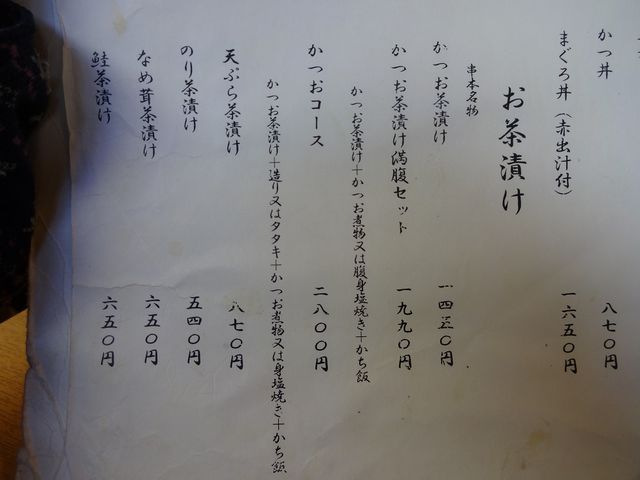 かつ丼 八七〇円
まぐろ丼（赤出汁付） 一六五〇円
お茶漬け
串本名物
かつお茶漬け 一四三〇円
かつお茶漬け満腹セット 一九九〇円
かつお茶漬け＋かつお煮物又は腹身塩焼き＋かち飯
かつおコース 二八〇〇円
かつお茶漬け＋造り又はタタキ＋かつお煮物又は身塩焼き＋かち飯
天ぷら茶漬け 八七〇円
のり茶漬け 五四〇円
なめ茸茶漬け 六五〇円
鮭茶漬け 六五〇円